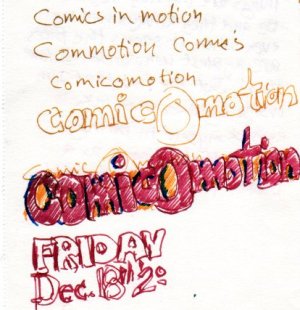 Comics in motion
Commotion
Comicomotion
comicOmotion
comic
comicOmotion
FRIDAY
Dec. 18th